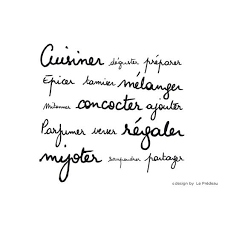 Cuisiner déguster préparer
Epicer tamiser mélanger
Mitonner concocter ajouter
Parfumer verser régaler
mijoter saupoudrer partager
s.design by Le Prédeau